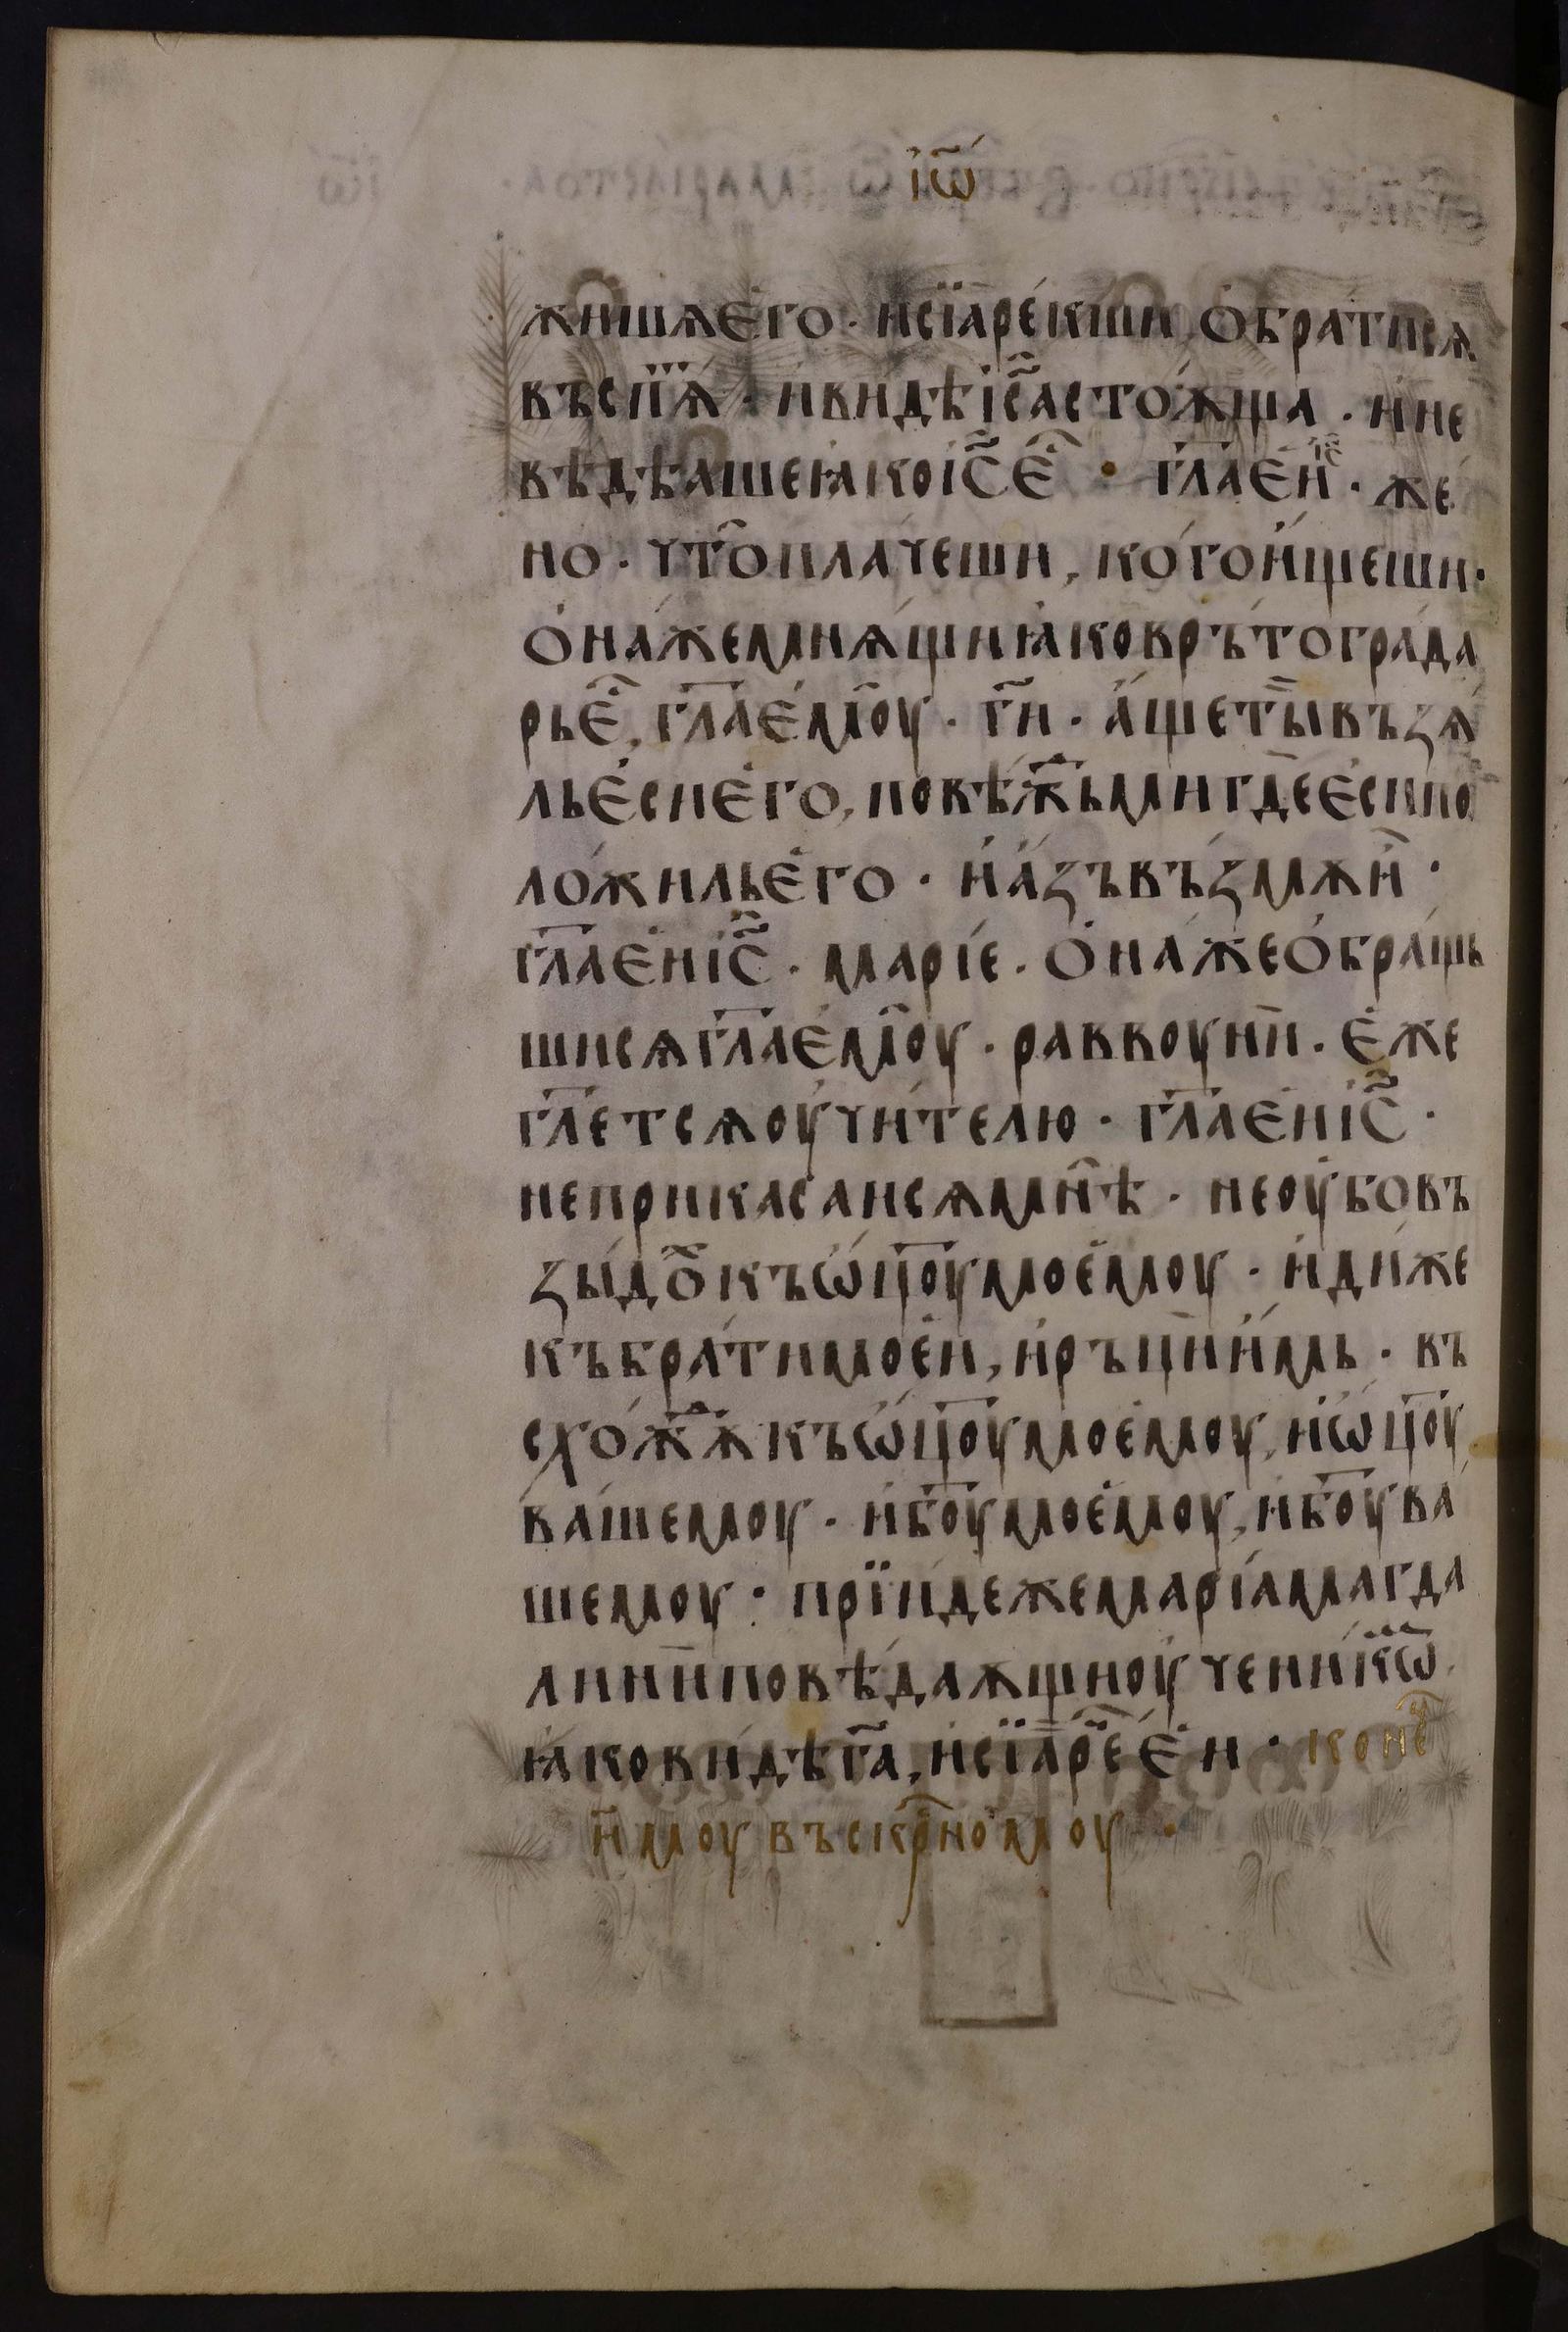 і҆ѡ҃
жишѧе҆го · исїа҆ре́кши ѻ҆брати́сѧ
въспѧ́ть · и҆видѣі҆с҃асто́ѫща · и҆не
вѣдѣашеꙗ҆коі҆с҃є҆ · гл҃ає҆и҆і҆с҃ · же́
но · чтѻ̀пла́чеши, кого̀и҆́щеши ·
ѻ҆на́жемнѧ́щиꙗ҆ковръ́тогра́да
рьє҆, гл҃ає҆моу · г҃и · а҆́щеты̀възѧ
льє҆сиє҆го, повѣ́ж҃ьмигдеє҆сипо
ло́жильє҆го · и҆а҆́зъвъзмѫи҆ ·
гл҃ає҆иі҆с҃ · марі́е · ѻ҆на́жеѻ҆бра́щь
шисѧгл҃ає҆моу · раввоуни · є҆же
гл҃етсѧоу҆чи́телю · гл҃ає҆иі҆с҃ ·
неприкасаисѧмн̑ѣ · неоу҆бовъ
зы́дѻкъѡ҆ц҃оумоє҆моу · и҆ди́же
къбра́тимоє҆и, и҆ръцѝи҆мь · въ
схо́жѫкъѡ҆ц҃оумоє҆моу, и҆ѡ҆ц҃оу
ва́шемоу · и҆б҃оумоє҆моу, и҆б҃оува́
шемоу · прїи́дежемарі́амагда
линиповѣ́даѫщиоу҆ченикѡ
ꙗ҆кови́дѣг҃а, и҆сїа҆рече҆є҆и · коне
н҃моувъскр҃номоу ·